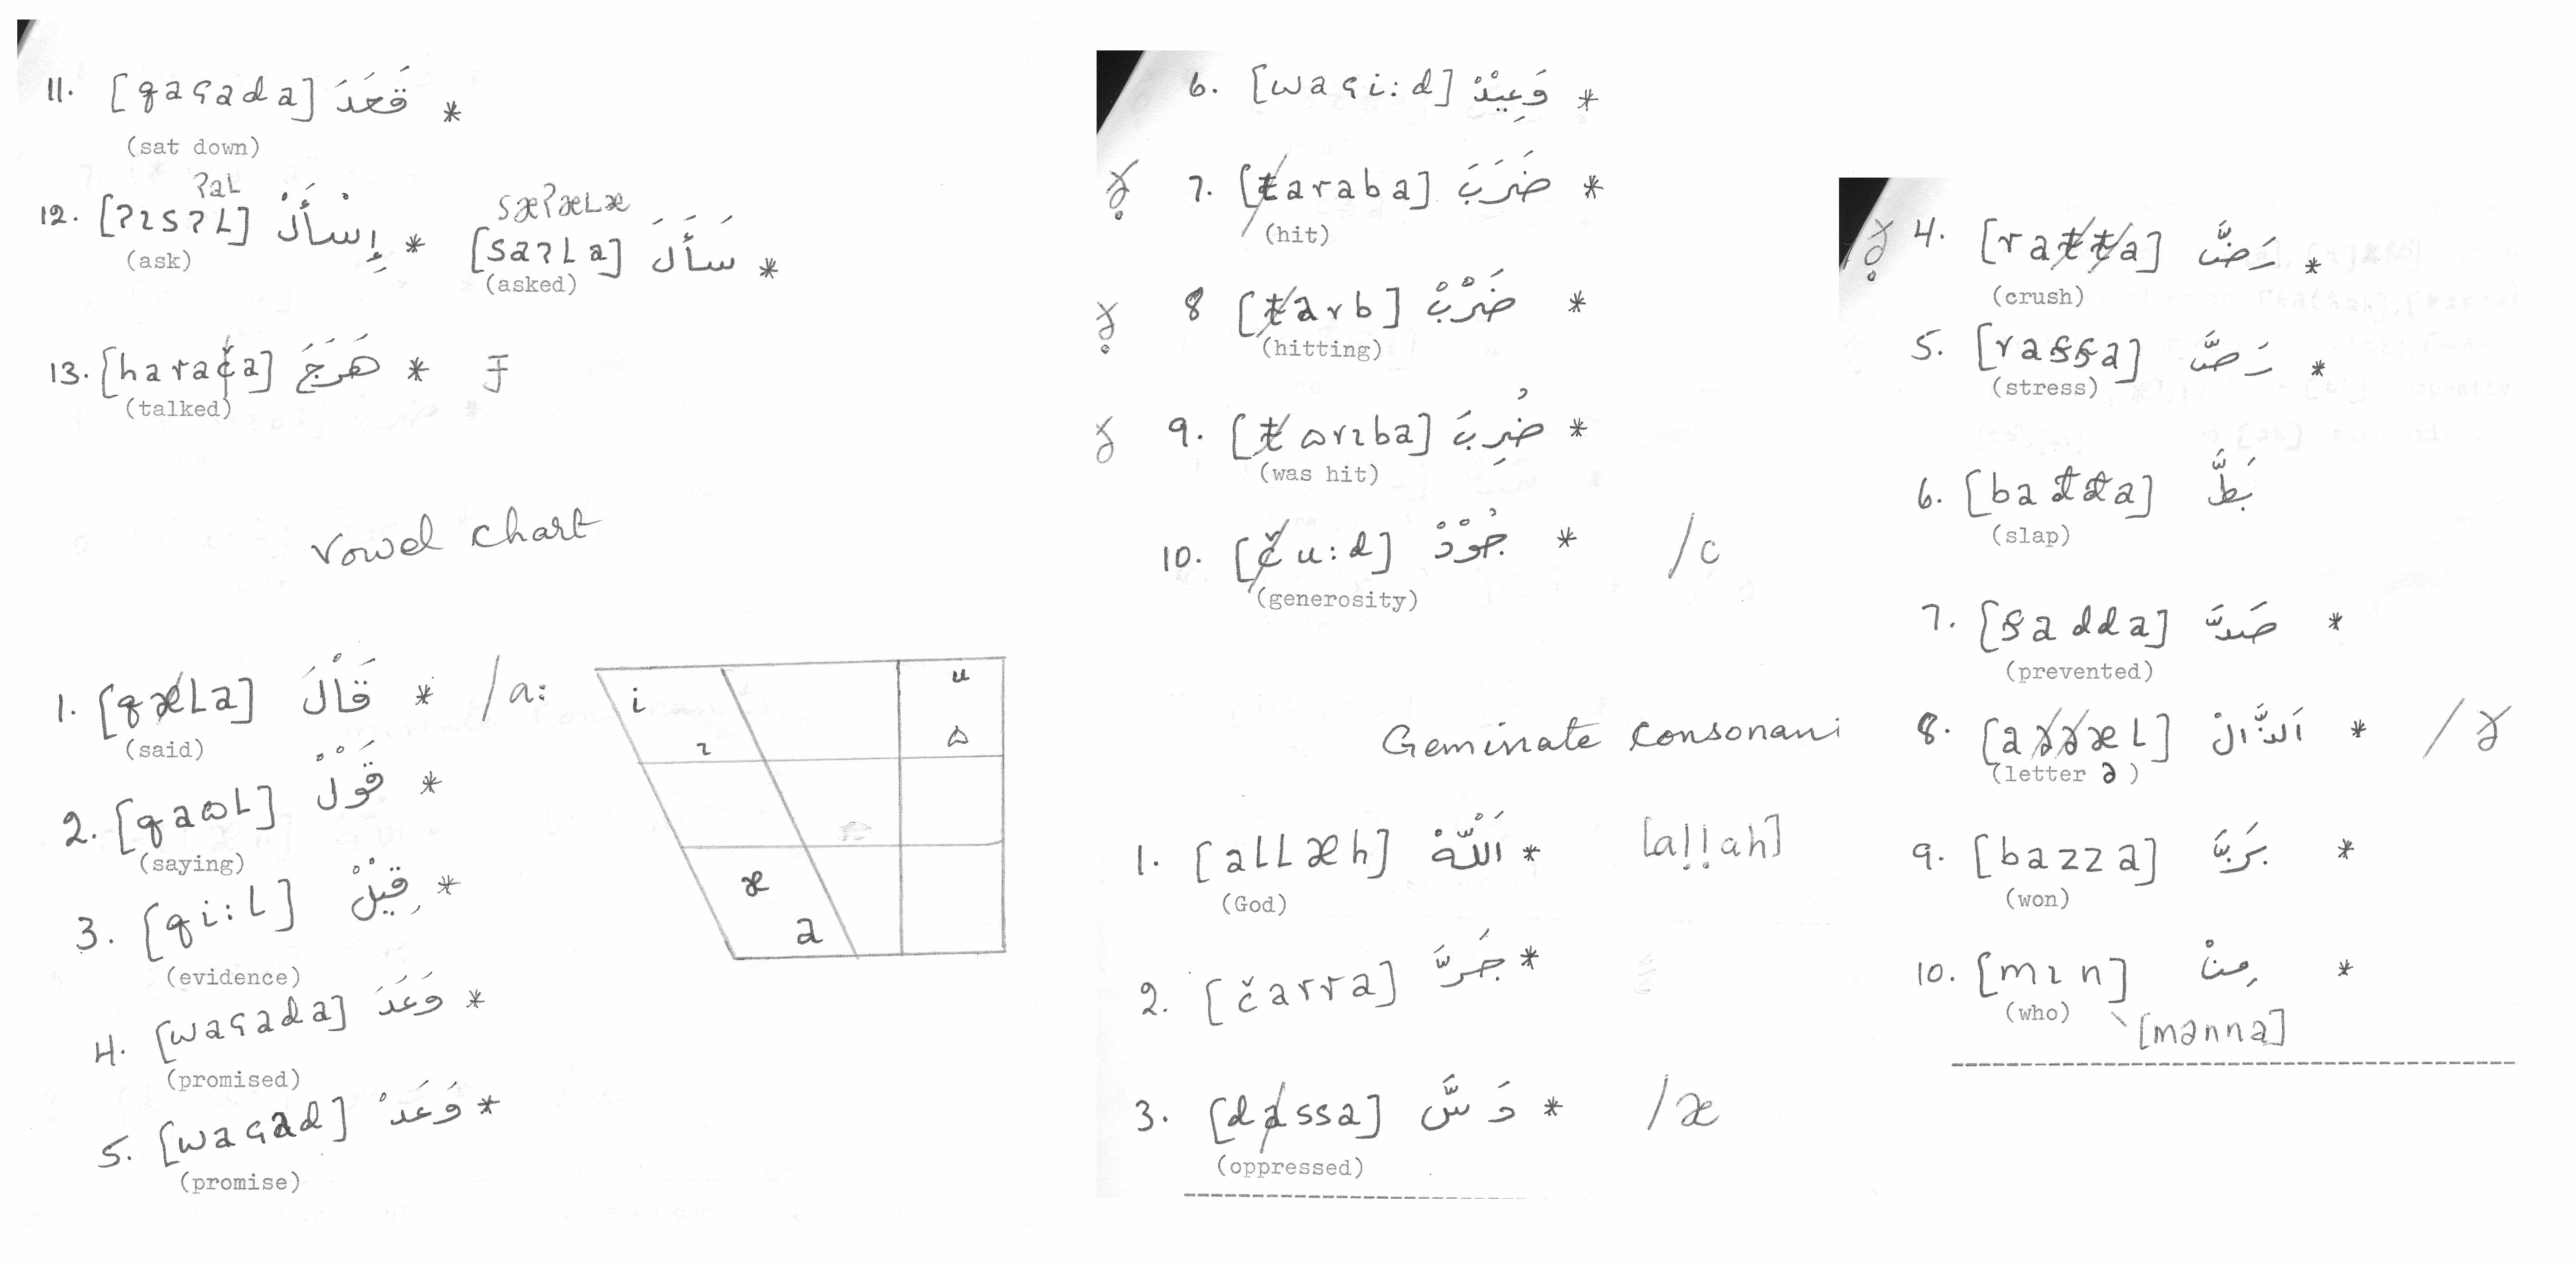 11. [qaʕada] قَعَدَ *
(sat down)
ʔaL
12. [ʔɩsʔL] إِسْأَلْ *
(ask)
sæʔæLæ
[saʔLa] سَأَلَ *
(asked)
13. [harača] هَرَجَ * ɟ
(talked)
Vowel chart
1. [qæLa] قَاْلَ * /a:
(said)
2. [qaɷL] قَوْلْ *
(saying)
3. [qi:L] قِيْلْ *
(evidence)
4. [waʕada] وَعَدَ *
(promised)
5. [waʕad] وَعَدْ *
(promise)
i u
ɩ ɷ
æ
a
6. [waʕi:d] وَعِيْدْ *
7. [ŧaraba] ضَرَبَ *
(hit)
8 [ŧarb] ضَرْبْ *
(hitting)
9. [ŧɷrɩba] ضُرِبَ *
(was hit)
10. [ču:d] جُوْدْ * /c
(generosity)
Geminate consonant
1. [aLLæh] اَللّهْ * [aḷḷah]
(God)
2. [čarra] جَرَّ *
3. [dassa] دَسَّ * /æ
(oppressed)
4. [raŧŧa] رَضَّ *
(crush)
5. [raṣṣa] رَصَّ *
(stress)
6. [baŧŧa] بَطَّ
(slap)
7. [ṣadda] صَدَّ *
(prevented)
8. [a æL] *
(letter )
9. [bazza] بَزَّ *
(won)
10. [mɩn] مِنْ *
(who)
[mənna]